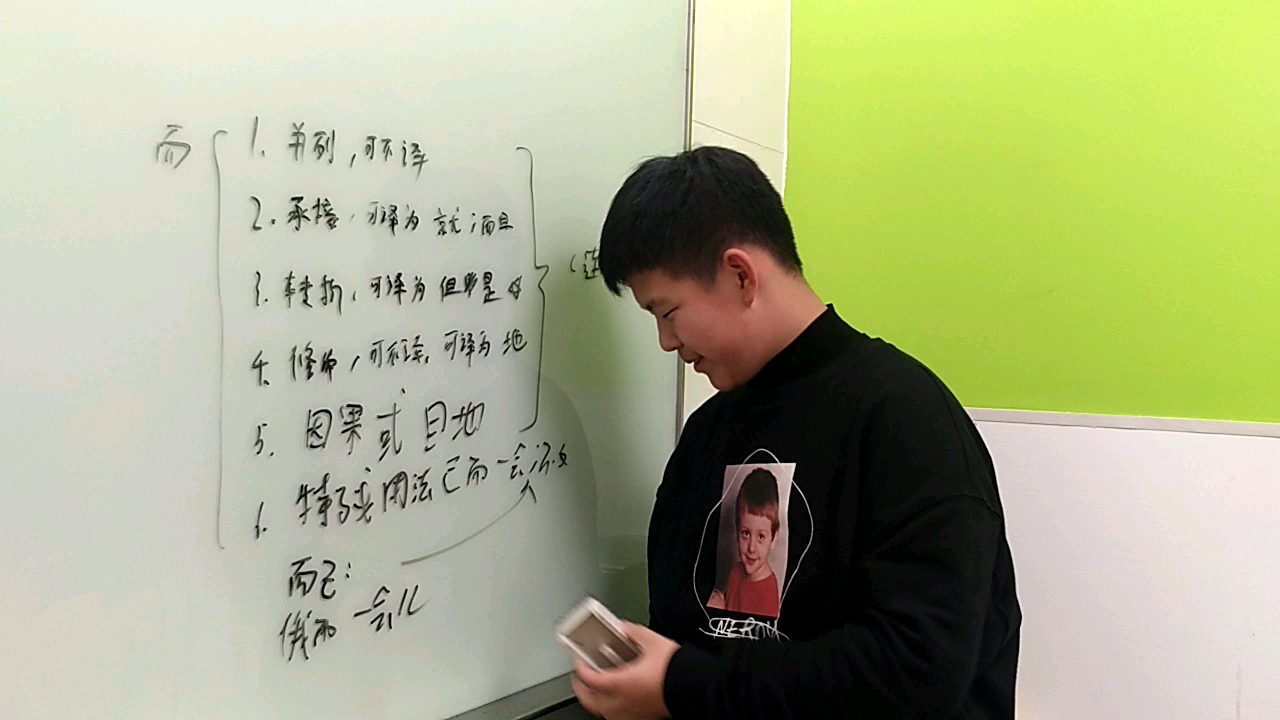 而
1. 并列，可不译
2. 承接，可译为 就；而且
3. 转折，可译为 但是
4. 修饰，可不译，可译为 地
5. 因果或目地
6. 特殊用法已而一会
而已：
俄而 一会儿
(连